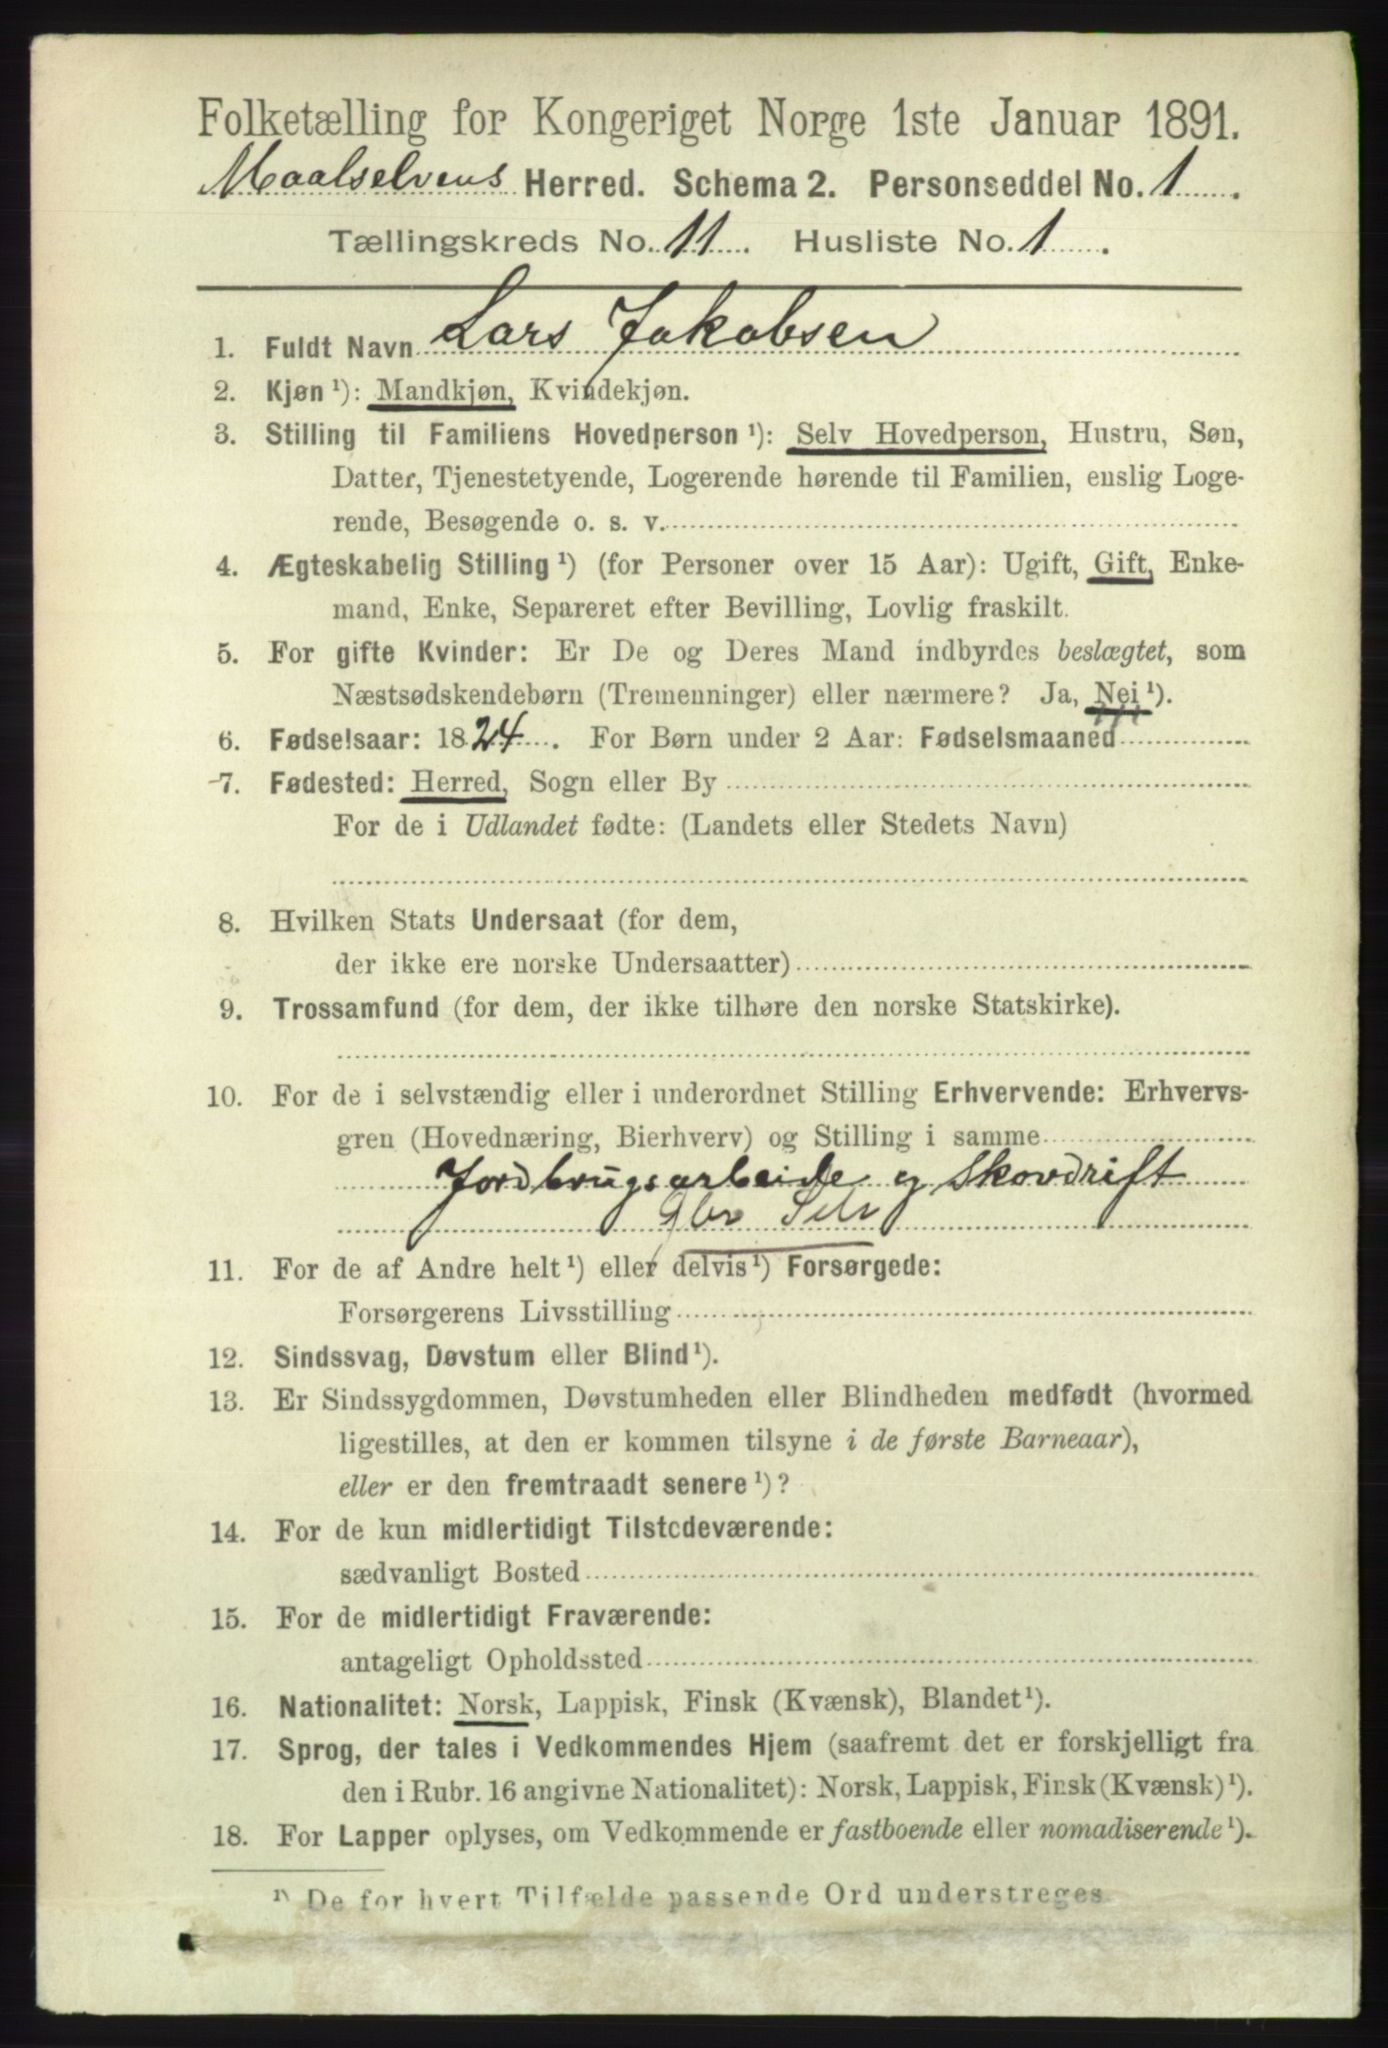 Folketælling for Kongeriget Norge 1ste Januar 1891.
Maalselvens Herred. Schema 2. Personseddel No. 1.
Tællingskreds No. 11. Husliste No. 1.
1. Fuldt Navn Lars Jakobsen
2. Kjøn ¹): Mandkjøn, Kvindekjøn.
3. Stilling til Familiens Hovedperson ¹): Selv Hovedperson, Hustru, Søn,
Datter, Tjenestetyende, Logerende hørende til Familien, enslig Loge-
rende, Besøgende o. s. v.
4. Ægteskabelig Stilling ¹) (for Personer over 15 Aar): Ugift, Gift, Enke-
mand, Enke, Separeret efter Bevilling, Lovlig fraskilt.
5. For gifte Kvinder: Er De og Deres Mand indbyrdes beslægtet, som
Næstsødskendebørn (Tremenninger) eller nærmere? Ja, Nei ¹).
6. Fødselsaar: 1824. For Børn under 2 Aar: Fødselsmaaned
7. Fødested: Herred, Sogn eller By
For de i Udlandet fødte: (Landets eller Stedets Navn)
8. Hvilken Stats Undersaat (for dem,
der ikke ere norske Undersaatter)
9. Trossamfund (for dem, der ikke tilhøre den norske Statskirke).
10. For de i selvstændig eller i underordnet Stilling Erhvervende: Erhvervs-
gren (Hovednæring, Bierhverv) og Stilling i samme
Jordbrugsarbeide og Skovdrift
Gbr Selv
11. For de af Andre helt ¹) eller delvis ¹) Forsørgede:
Forsørgerens Livsstilling
12. Sindssvag, Døvstum eller Blind ¹).
13. Er Sindssygdommen, Døvstumheden eller Blindheden medfødt (hvormed
ligestilles, at den er kommen tilsyne i de første Barneaar),
eller er den fremtraadt senere ¹)?
14. For de kun midlertidigt Tilstedeværende:
sædvanligt Bosted
15. For de midlertidigt Fraværende:
antageligt Opholdssted
16. Nationalitet: Norsk, Lappisk, Finsk (Kvænsk), Blandet ¹).
17. Sprog, der tales i Vedkommendes Hjem (saafremt det er forskjelligt fra
den i Rubr. 16 angivne Nationalitet): Norsk, Lappisk, Finsk (Kvænsk) ¹).
18. For Lapper oplyses, om Vedkommende er fastboende eller nomadiserende ¹).
¹) De for hvert Tilfælde passende Ord understreges